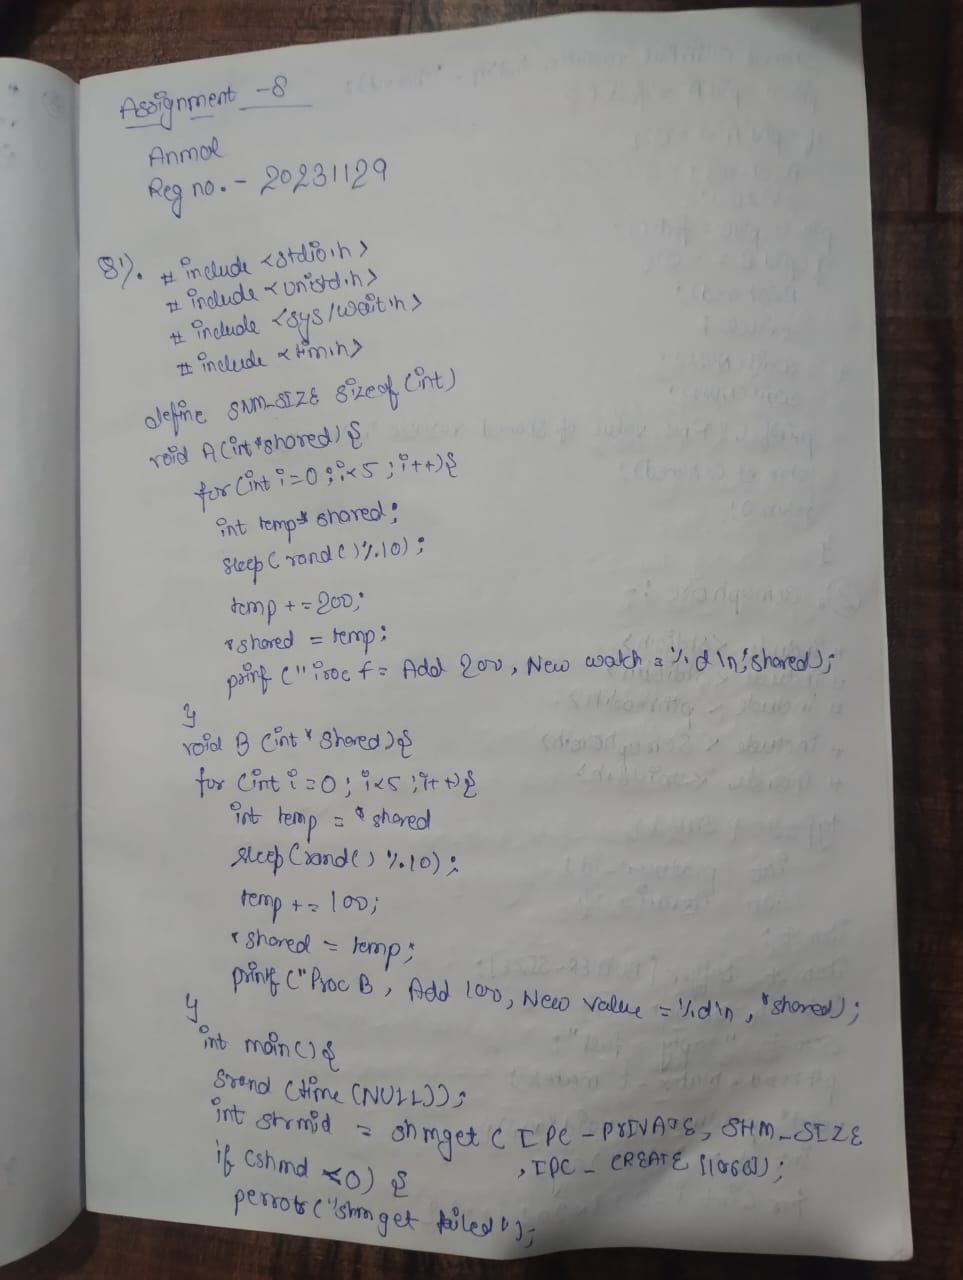 Assignment -8
Anmol
Reg no. - 20231129
8').
# include <stdio.h>
# include <unistd.h>
# include <sys/wait.h>
# include <tim.h>
define SNM_SIZE sizeof (int)
void A (int *shared) {
for (int i=0; i<5; i++){
int temp* shared;
sleep (rand()%10);
temp += 200;
*shared = temp;
printf (" Add 200, New = %d\n, *shared);
}
void B (int * shared) {
for (int i=0; i<5; i++){
int temp = *shared
sleep (rand() %10);
temp += 100;
*shared = temp;
printf ("Proc B, Add 100, New value = %d\n, *shared);
}
int main() {
srand (time (NULL));
int = shmget ( IPC_PRIVATE, SHM_SIZE
, IPC_CREATE
if (shmd <0) {
("shmget failed");